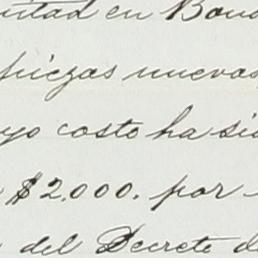 en Bono
piezas nuevas
costo ha si
$2,000. por
del Decreto d